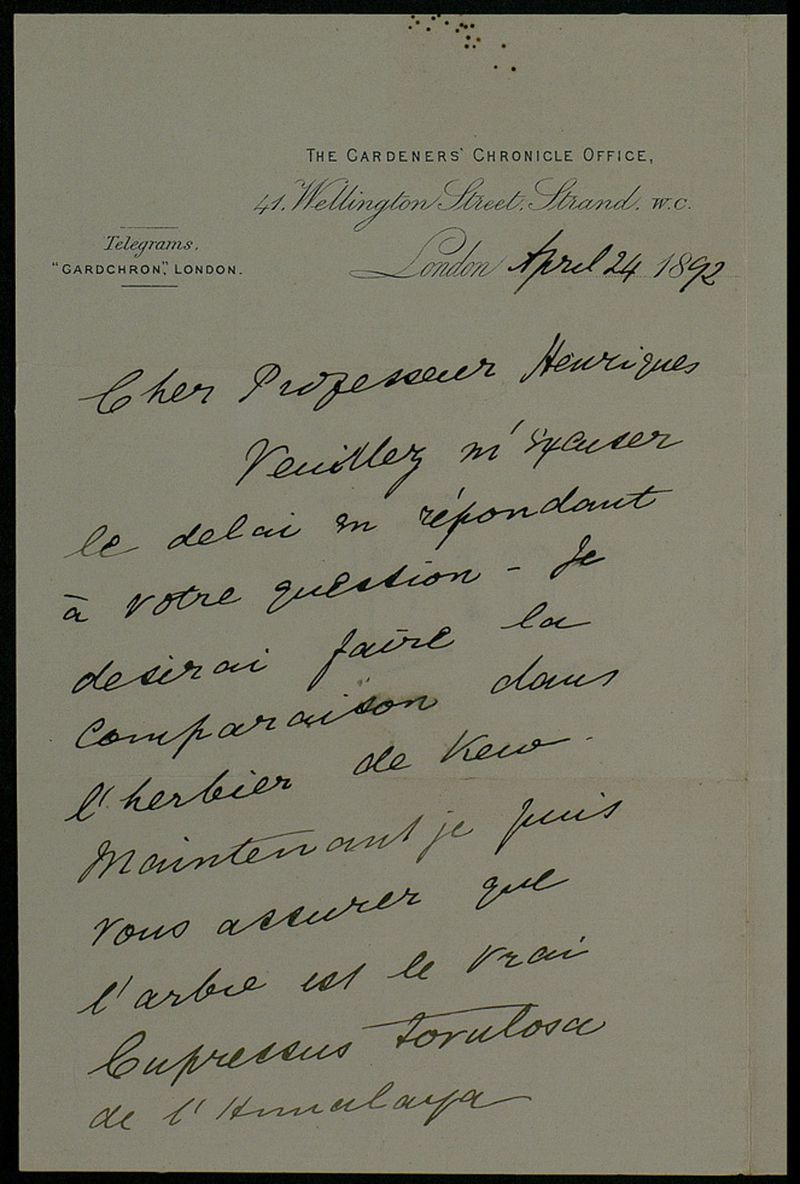 THE GARDENERS' CHRONICLE OFFICE,
41, Wellington Street, Strand, W.C.
Telegrams,
"GARDCHRON", LONDON.
London April 24 1892
Cher Professeur Henriques
Veuillez m'excuser
le delai en répondant
à votre question - Je
desirai faire la
comparaison dans
l'herbier de Kew -
Maintenant je puis
vous assurer que
l'arbre est le vrai
Cupressus torulosa
de l'Himalaya